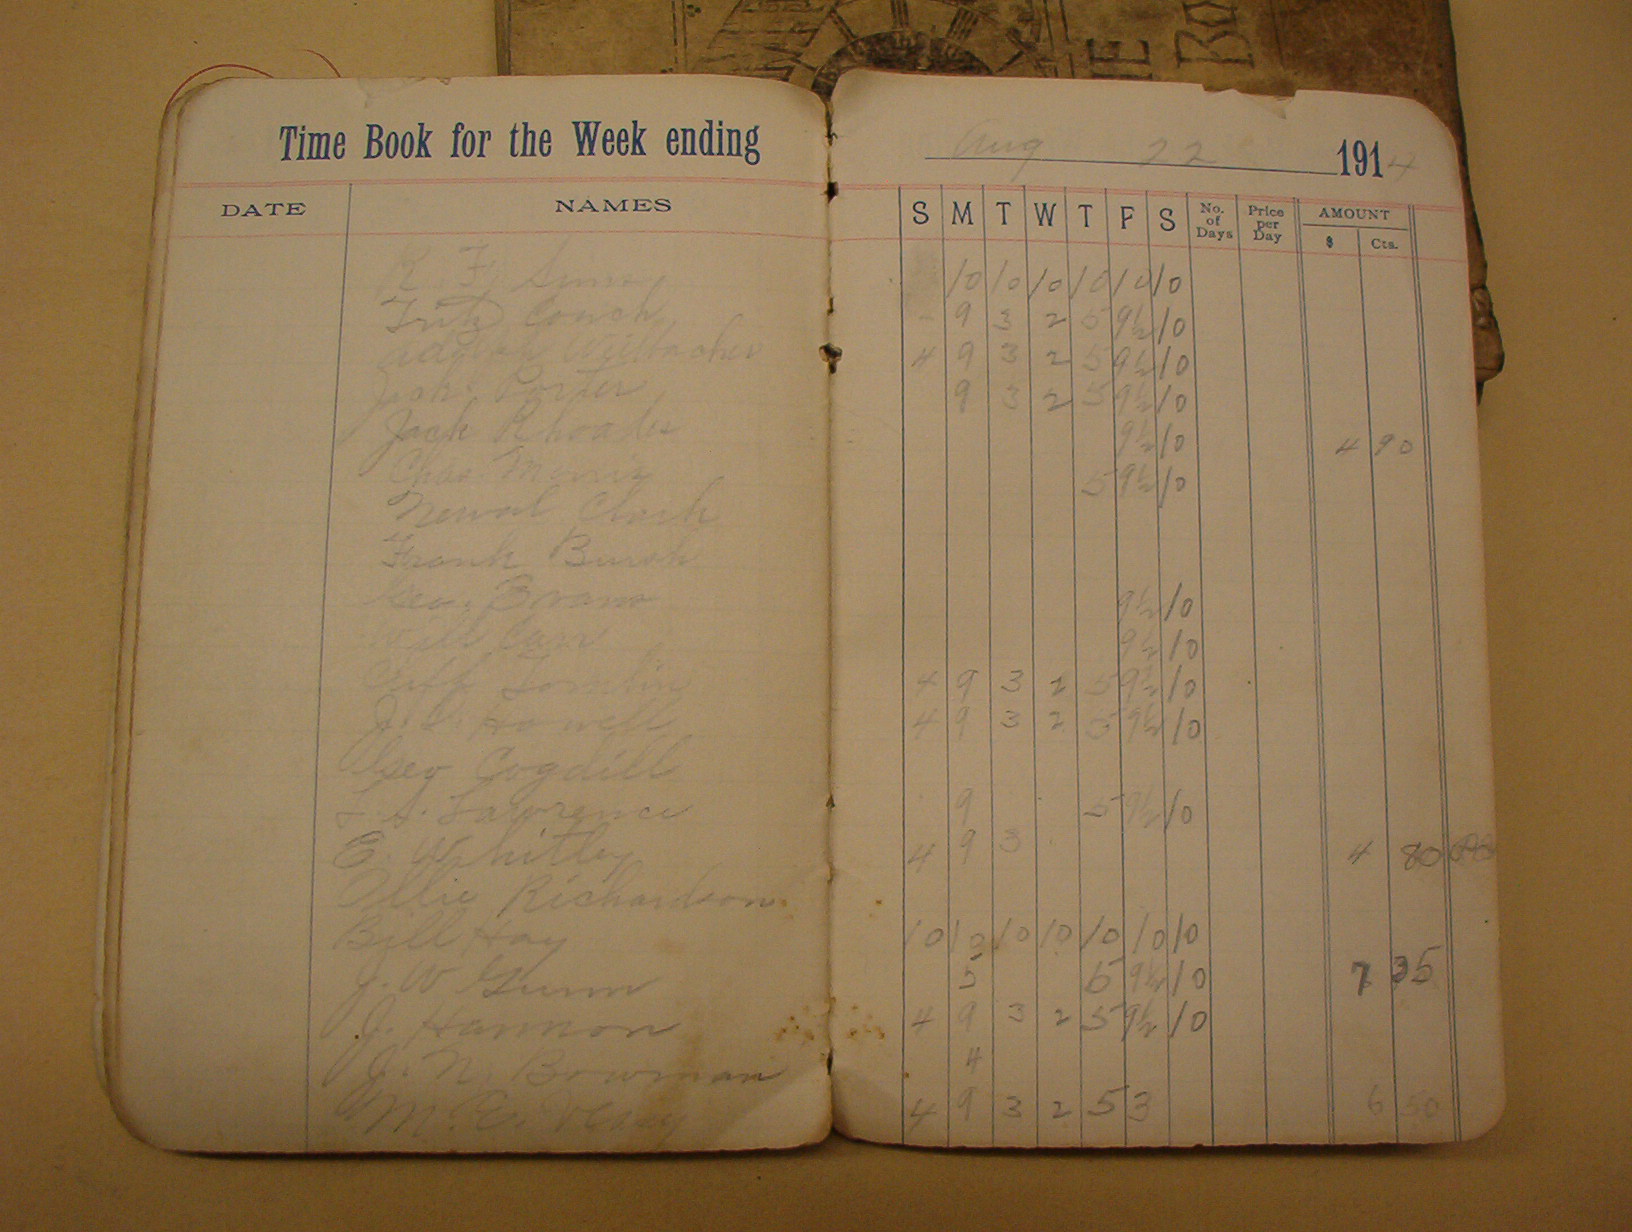 ME
BO
Time Book for the Week ending Aug 22 1914
DATE NAMES S M T W T F S No. of Days Price per Day AMOUNT $ Cts.
R. F. 10 10 10 10 10 10
Fritz Couch - 9 3 2 5 9½ 10
4 9 3 2 5 9½ 10
Porter 9 3 2 5 9½ 10
Jack Rhoades 9½ 10 4 90
Chas. Morris 5 9½ 10
Newal Clark
Frank Burch
Geo. Evans 9½ 10
Will Carr 9½ 10
Tomlin 4 9 3 2 5 9½ 10
J. S. Howell 4 9 3 2 5 9½ 10
Geo Cogdill
L. S. Lawrence 9 5 9½ 10
E. Whitley 4 9 3 4 80
Ollie Richardson
Bill Hay 10 10 10 10 10 10
J. W Gunn 5 5 9½ 10 7 35
J. Hannon 4 9 3 2 5 9½ 10
J. N. Bowman 4
Wm. 4 9 3 2 5 3 6 50